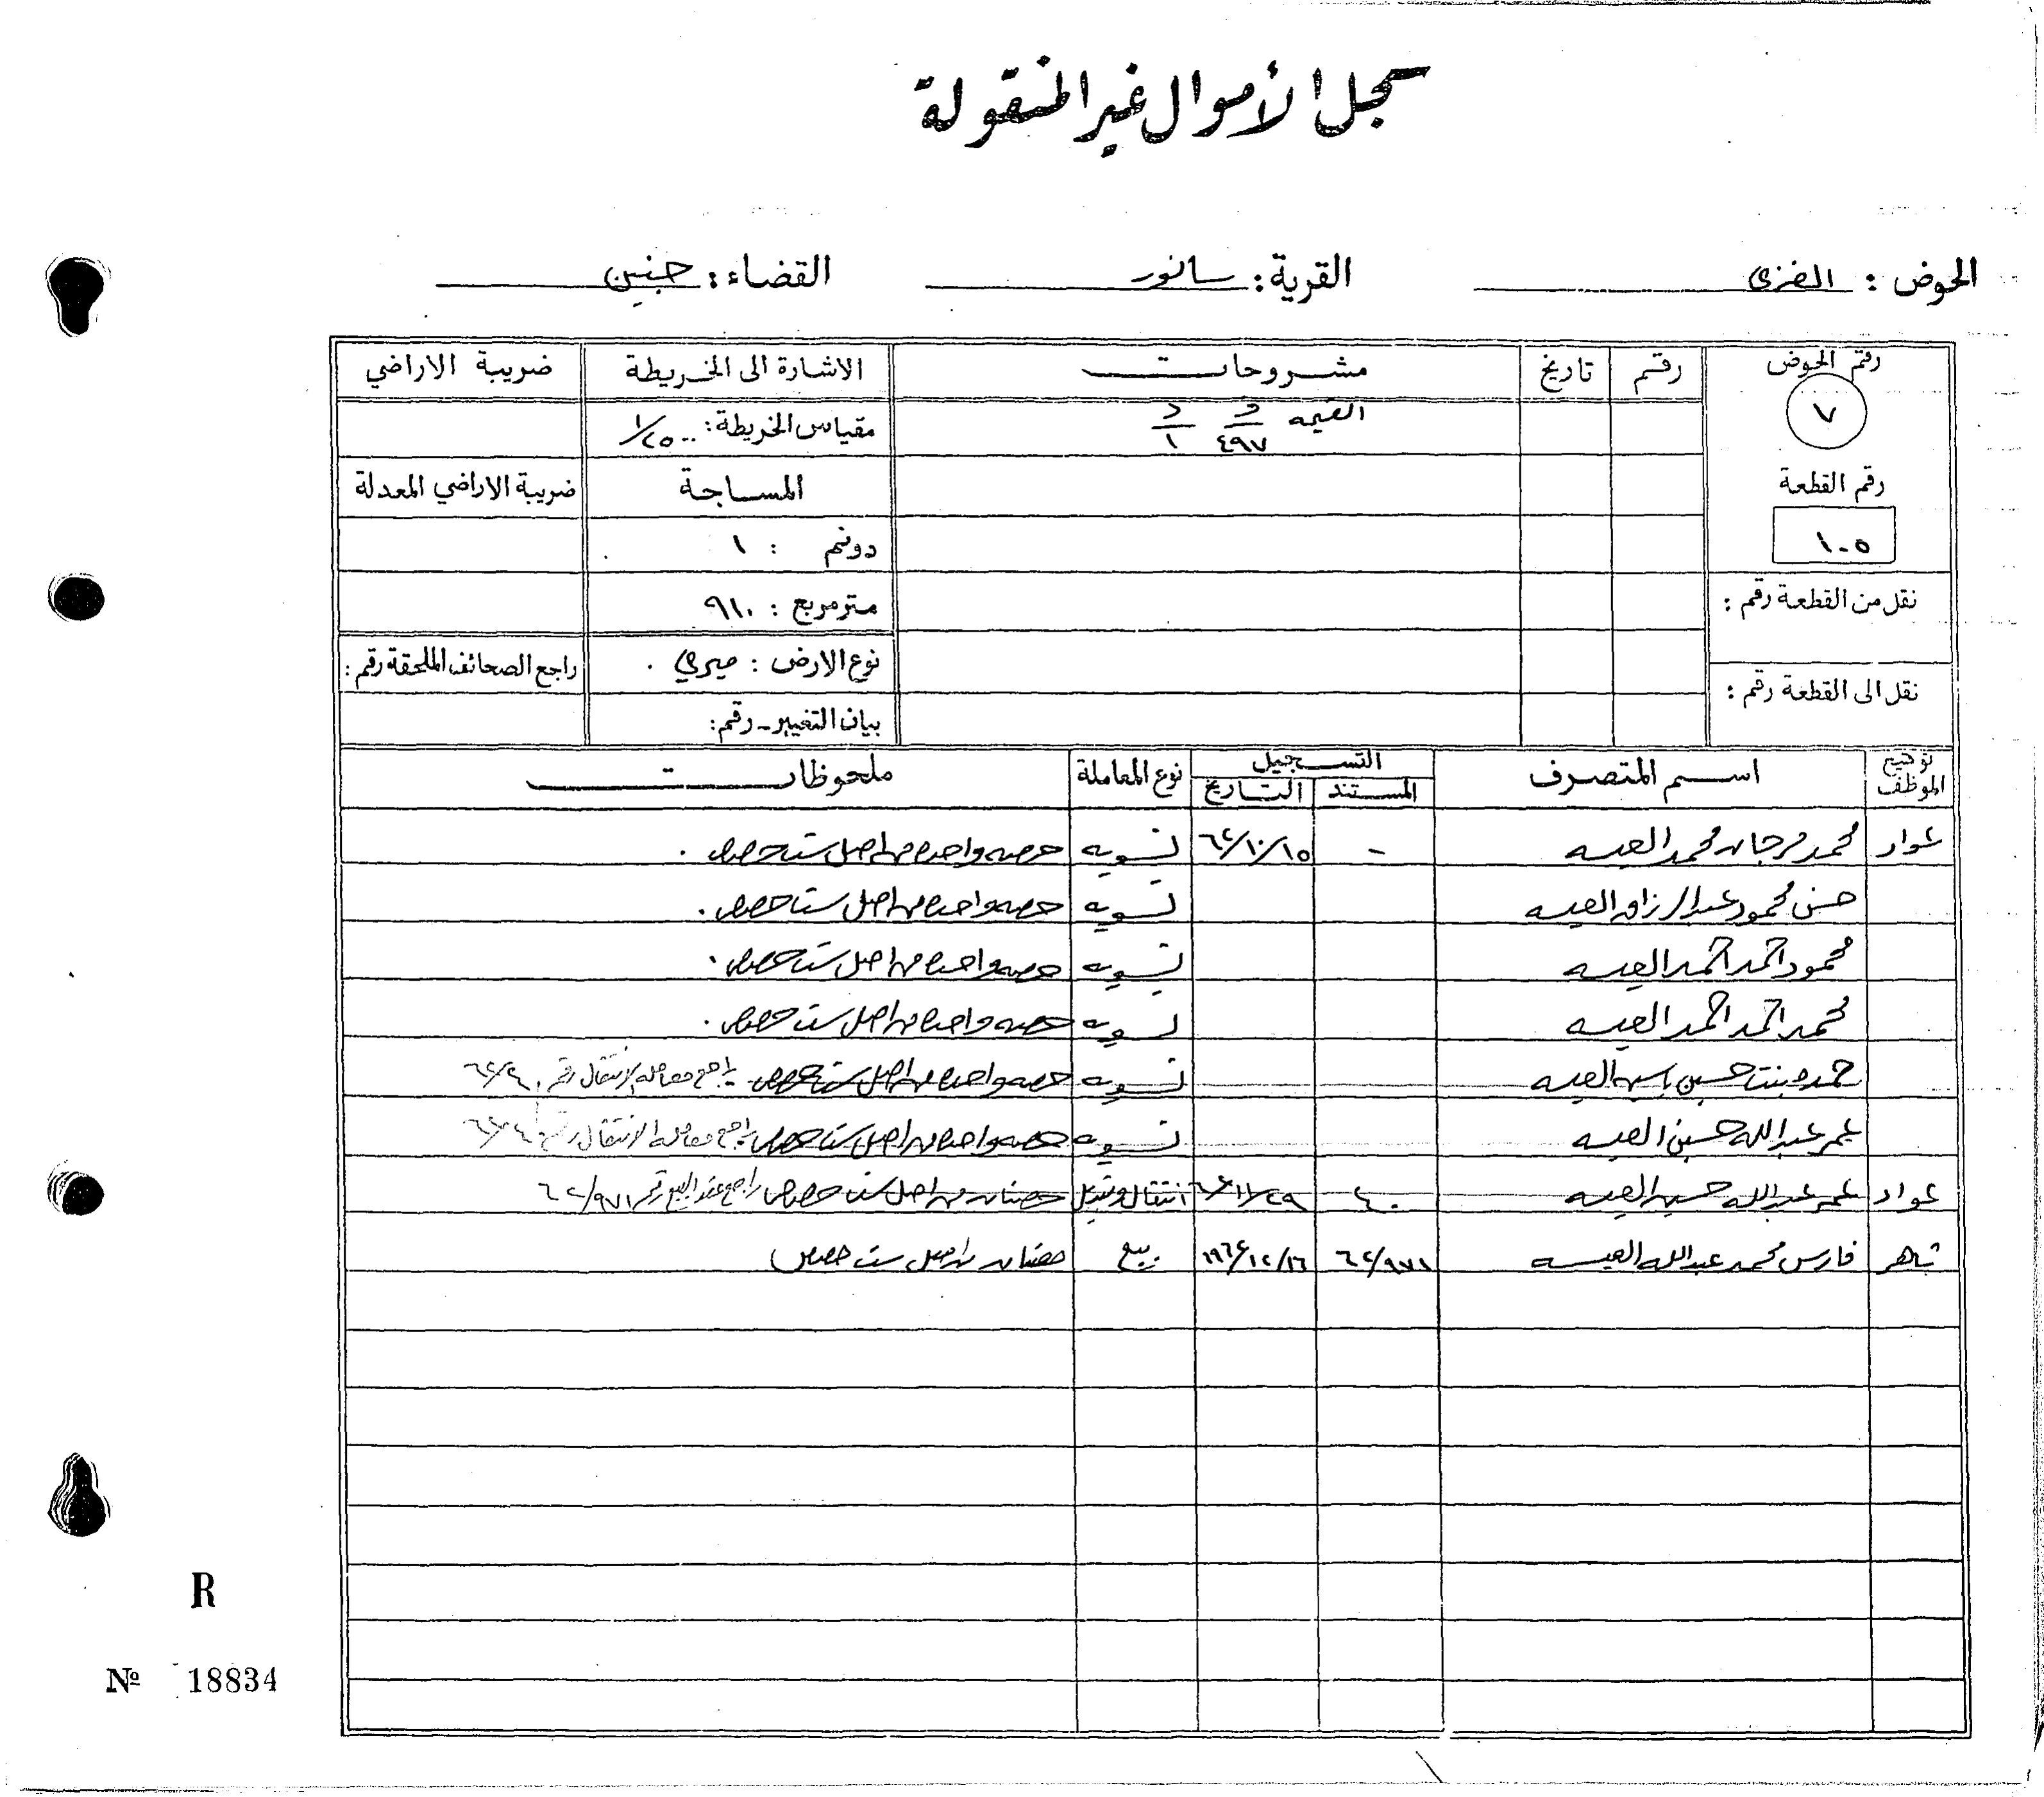 سجل الأموال غير المنقولة
الحوض : الغزي القرية : سانور القضاء : جنين
رقم الحوض رقم تاريخ مشروحات الاشارة الى الخريطة ضريبة الاراضي
٧ القيمه د/٤٩٧ د/١ مقياس الخريطة : ١/٢٥٠٠
رقم القطعة المساحة ضريبة الاراضي المعدلة
١٠٥ دونم : ١
نقل من القطعة رقم : متر مربع : ٩١٠
نوع الارض : ميري . راجع الصحائف الملحقة رقم :
نقل الى القطعة رقم :
بيان التغيير - رقم :
توقيع الموظف اسم المتصرف التسجيل نوع المعاملة ملحوظات
المستند التاريخ
عواد محمد مرجان محمد العيسه - ٦٤/١٠/١٥ تسويه حصه واحده من اصل ست حصص .
حسن محمود عبد الرزاق العيسه تسويه حصه واحده من اصل ست حصص .
محمود احمد احمد العيسه تسويه حصه واحده من اصل ست حصص .
محمد احمد احمد العيسه تسويه حصه واحده من اصل ست حصص .
حمده بنت حسين ياسين العيسه تسويه حصه واحده من اصل ست حصص راجع معاملة الانتقال رقم
عمر عبد الله حسين العيسه تسويه حصه واحده من اصل ست حصص راجع معاملة الانتقال رقم
عواد عمر عبد الله حسين العيسه ٤٠ ٦٤/١١/٢٩ انتقال حصتان من اصل ست حصص راجع عقد البيع رقم ٦٤/٩٧١
فارس محمد عبد الله العيسه ٦٤/٩٧١ ١٩٦٤/١٢/١٦ بيع حصتان من اصل ست حصص
R
№ 18834